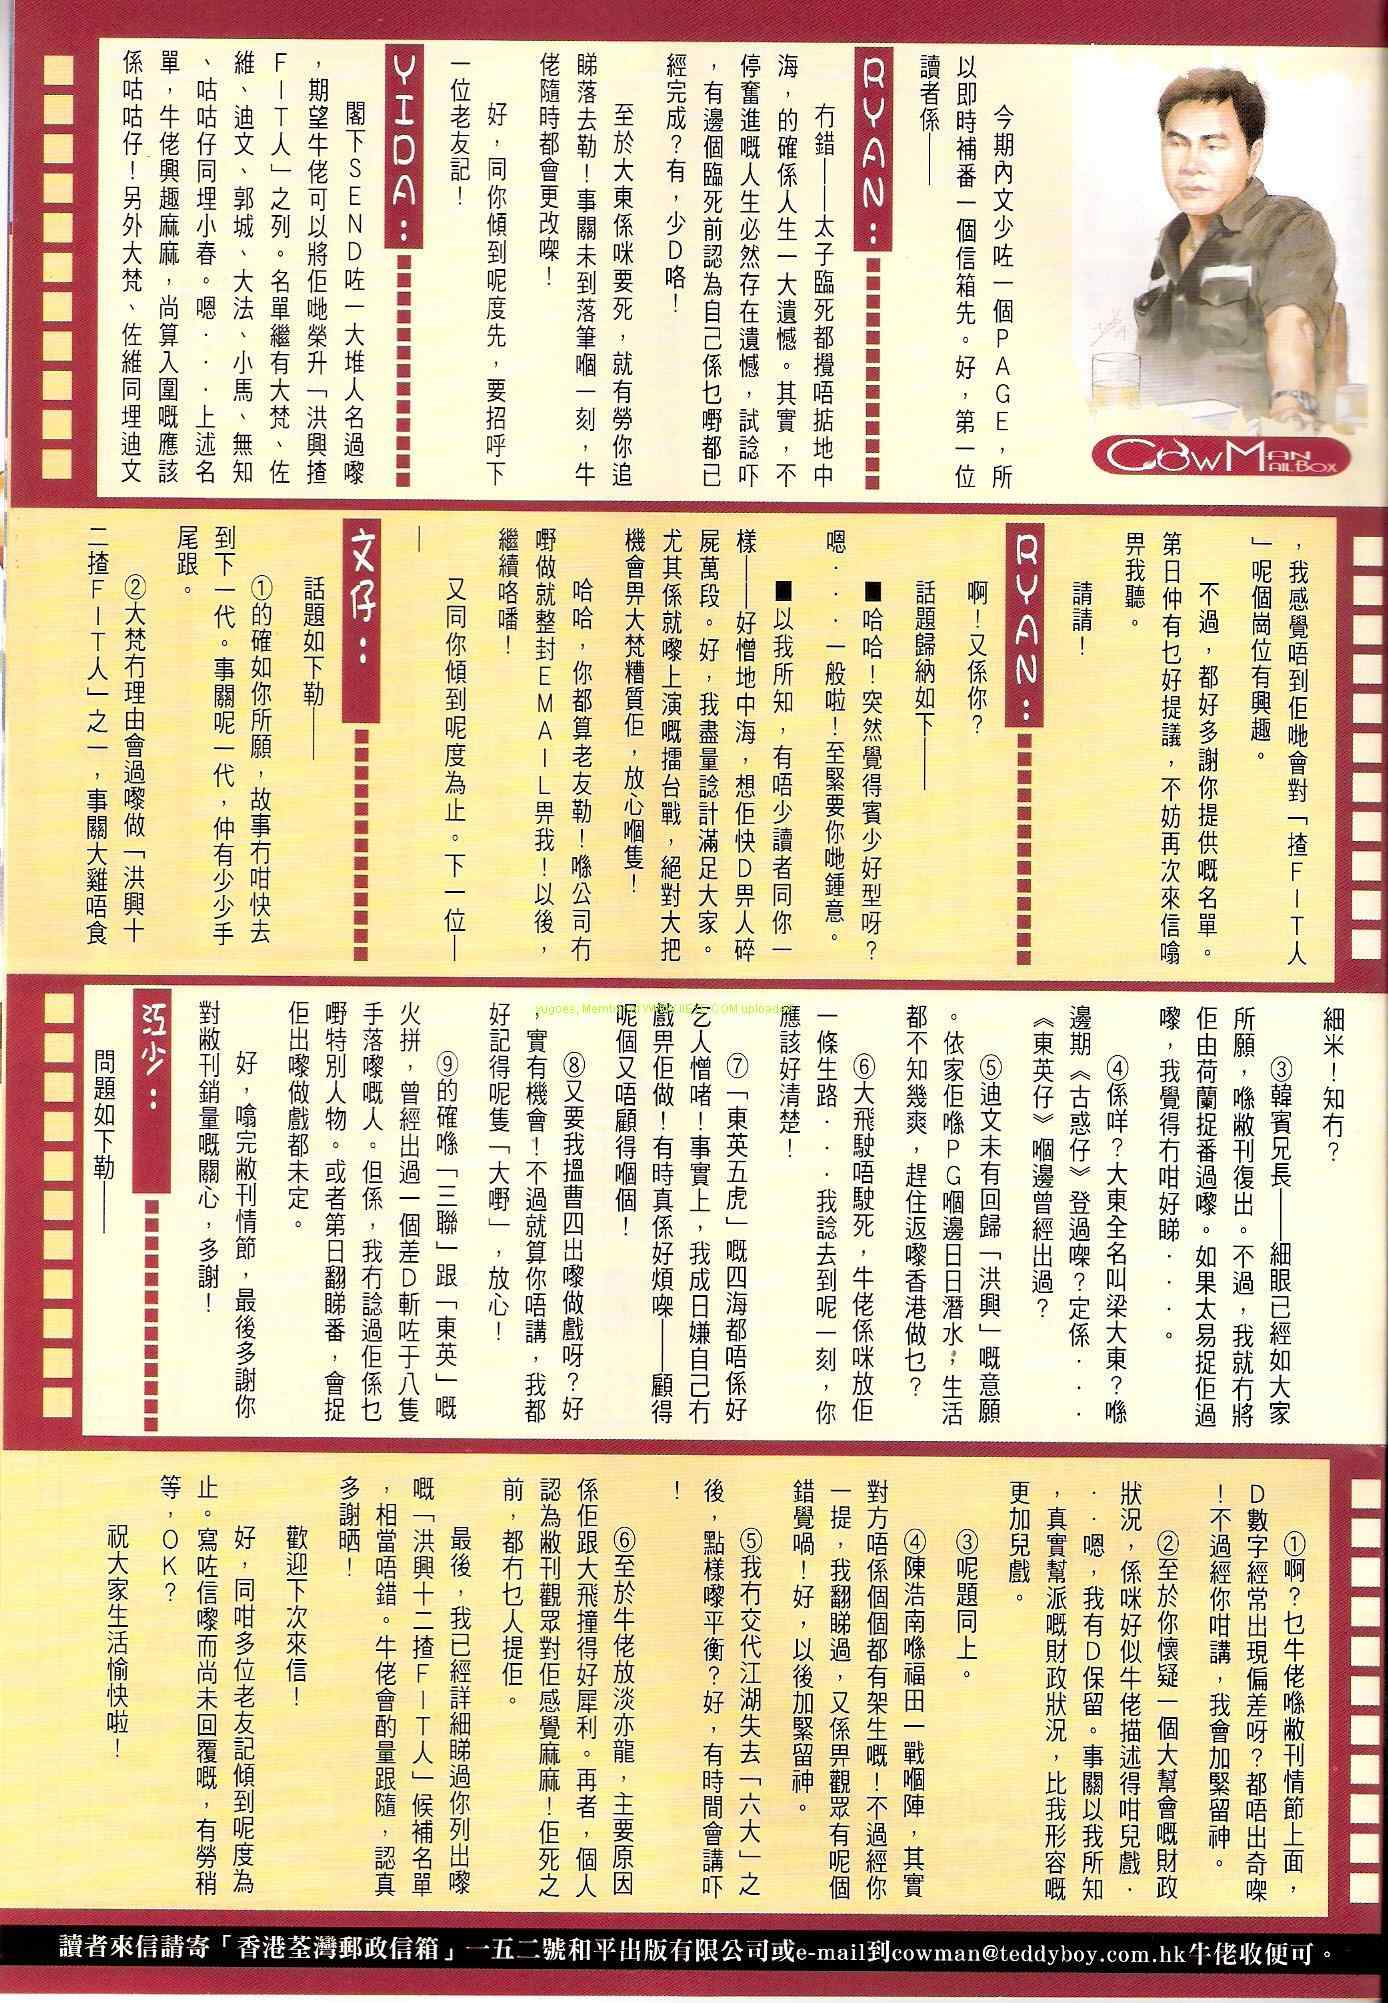 COWMAN MAILBOX
今期內文少咗一個PAGE,所
以即時補番一個信箱先。好,第一位
讀者係——
RYAN:
冇錯——太子臨死都攪唔掂地中
海,的確係人生一大遺憾。其實,不
停奮進嘅人生必然存在遺憾,試諗吓
,有邊個臨死前認為自己係乜嘢都已
經完成?有,少D咯!
至於大東係咪要死,就有勞你追
睇落去勒!事關未到落筆嗰一刻,牛
佬隨時都會更改㗎!
好,同你傾到呢度先,要招呼下
一位老友記!
YIDA:
閣下SEND咗一大堆人名過嚟
,期望牛佬可以將佢哋榮升「洪興揸
FIT人」之列。名單繼有大梵、佐
維、迪文、郭城、大法、小馬、無知
、咕咕仔同埋小春。嗯...上述名
單,牛佬興趣麻麻,尚算入圍嘅應該
係咕咕仔!另外大梵、佐維同埋迪文
,我感覺唔到佢哋會對「揸FIT人
」呢個崗位有興趣。
不過,都好多謝你提供嘅名單。
第日仲有乜好提議,不妨再次來信噏
畀我聽。
請請!
RYAN:
啊!又係你?
話題歸納如下——
■哈哈!突然覺得賓少好型呀?
嗯...一般啦!至緊要你哋鍾意。
■以我所知,有唔少讀者同你一
樣——好憎地中海,想佢快D畀人碎
屍萬段。好,我盡量諗計滿足大家。
尤其係就嚟上演嘅擂台戰,絕對大把
機會畀大梵糟質佢,放心嗰隻!
哈哈,你都算老友勒!喺公司冇
嘢做就整封EMAIL畀我!以後,
繼續咯噃!
又同你傾到呢度為止。下一位—
—
文仔:
話題如下勒——
①的確如你所願,故事冇咁快去
到下一代。事關呢一代,仲有少少手
尾跟。
②大梵冇理由會過嚟做「洪興十
二揸FIT人」之一,事關大雞唔食
細米!知冇?
③韓賓兄長——細眼已經如大家
所願,喺敝刊復出。不過,我就冇將
佢由荷蘭捉番過嚟。如果太易捉佢過
嚟,我覺得冇咁好睇...。
④係咩?大東全名叫梁大東?喺
邊期《古惑仔》登過㗎?定係...
《東英仔》嗰邊曾經出過?
⑤迪文未有回歸「洪興」嘅意願
。依家佢喺PG嗰邊日日潛水,生活
都不知幾爽,趕住返嚟香港做乜?
⑥大飛駛唔駛死,牛佬係咪放佢
一條生路...我諗去到呢一刻,你
應該好清楚!
⑦「東英五虎」嘅四海都唔係好
乞人憎啫!事實上,我成日嫌自己冇
戲畀佢做!有時真係好煩㗎——顧得
呢個又唔顧得嗰個!
⑧又要我搵曹四出嚟做戲呀?好
,實有機會!不過就算你唔講,我都
好記得呢隻「大嘢」,放心!
⑨的確喺「三聯」跟「東英」嘅
火拼,曾經出過一個差D斬咗于八隻
手落嚟嘅人。但係,我冇諗過佢係乜
嘢特別人物。或者第日翻睇番,會捉
佢出嚟做戲都未定。
好,噏完敝刊情節,最後多謝你
對敝刊銷量嘅關心,多謝!
江少:
問題如下勒——
①啊?乜牛佬喺敝刊情節上面,
D數字經常出現偏差呀?都唔出奇㗎
!不過經你咁講,我會加緊留神。
②至於你懷疑一個大幫會嘅財政
狀況,係咪好似牛佬描述得咁兒戲.
..嗯,我有D保留。事關以我所知
,真實幫派嘅財政狀況,比我形容嘅
更加兒戲。
③呢題同上。
④陳浩南喺福田一戰嗰陣,其實
對方唔係個個都有架生嘅!不過經你
一提,我翻睇過,又係畀觀眾有呢個
錯覺喎!好,以後加緊留神。
⑤我冇交代江湖失去「六大」之
後,點樣嚟平衡?好,有時間會講吓
!
⑥至於牛佬放淡亦龍,主要原因
係佢跟大飛撞得好犀利。再者,個人
認為敝刊觀眾對佢感覺麻麻!佢死之
前,都冇乜人提佢。
最後,我已經詳細睇過你列出嚟
嘅「洪興十二揸FIT人」候補名單
,相當唔錯。牛佬會酌量跟隨,認真
多謝晒!
歡迎下次來信!
好,同咁多位老友記傾到呢度為
止。寫咗信嚟而尚未回覆嘅,有勞稍
等,OK?
祝大家生活愉快啦!
讀者來信請寄「香港荃灣郵政信箱」一五二號和平出版有限公司或e-mail到cowman@teddyboy.com.hk牛佬收便可。